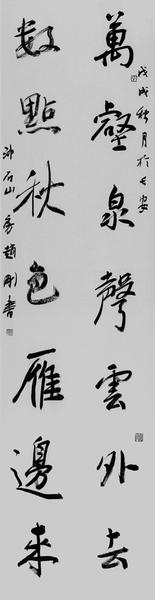 萬壑泉聲雲外去
戊戌秋月於長安
數點秋色雁邊來
沖石山房趙剛書